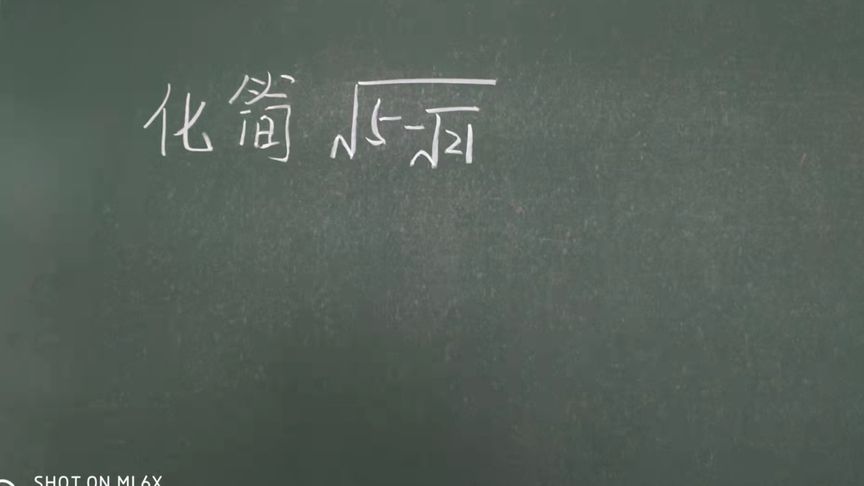 化简 √(5-√21)
SHOT ON MI 6X